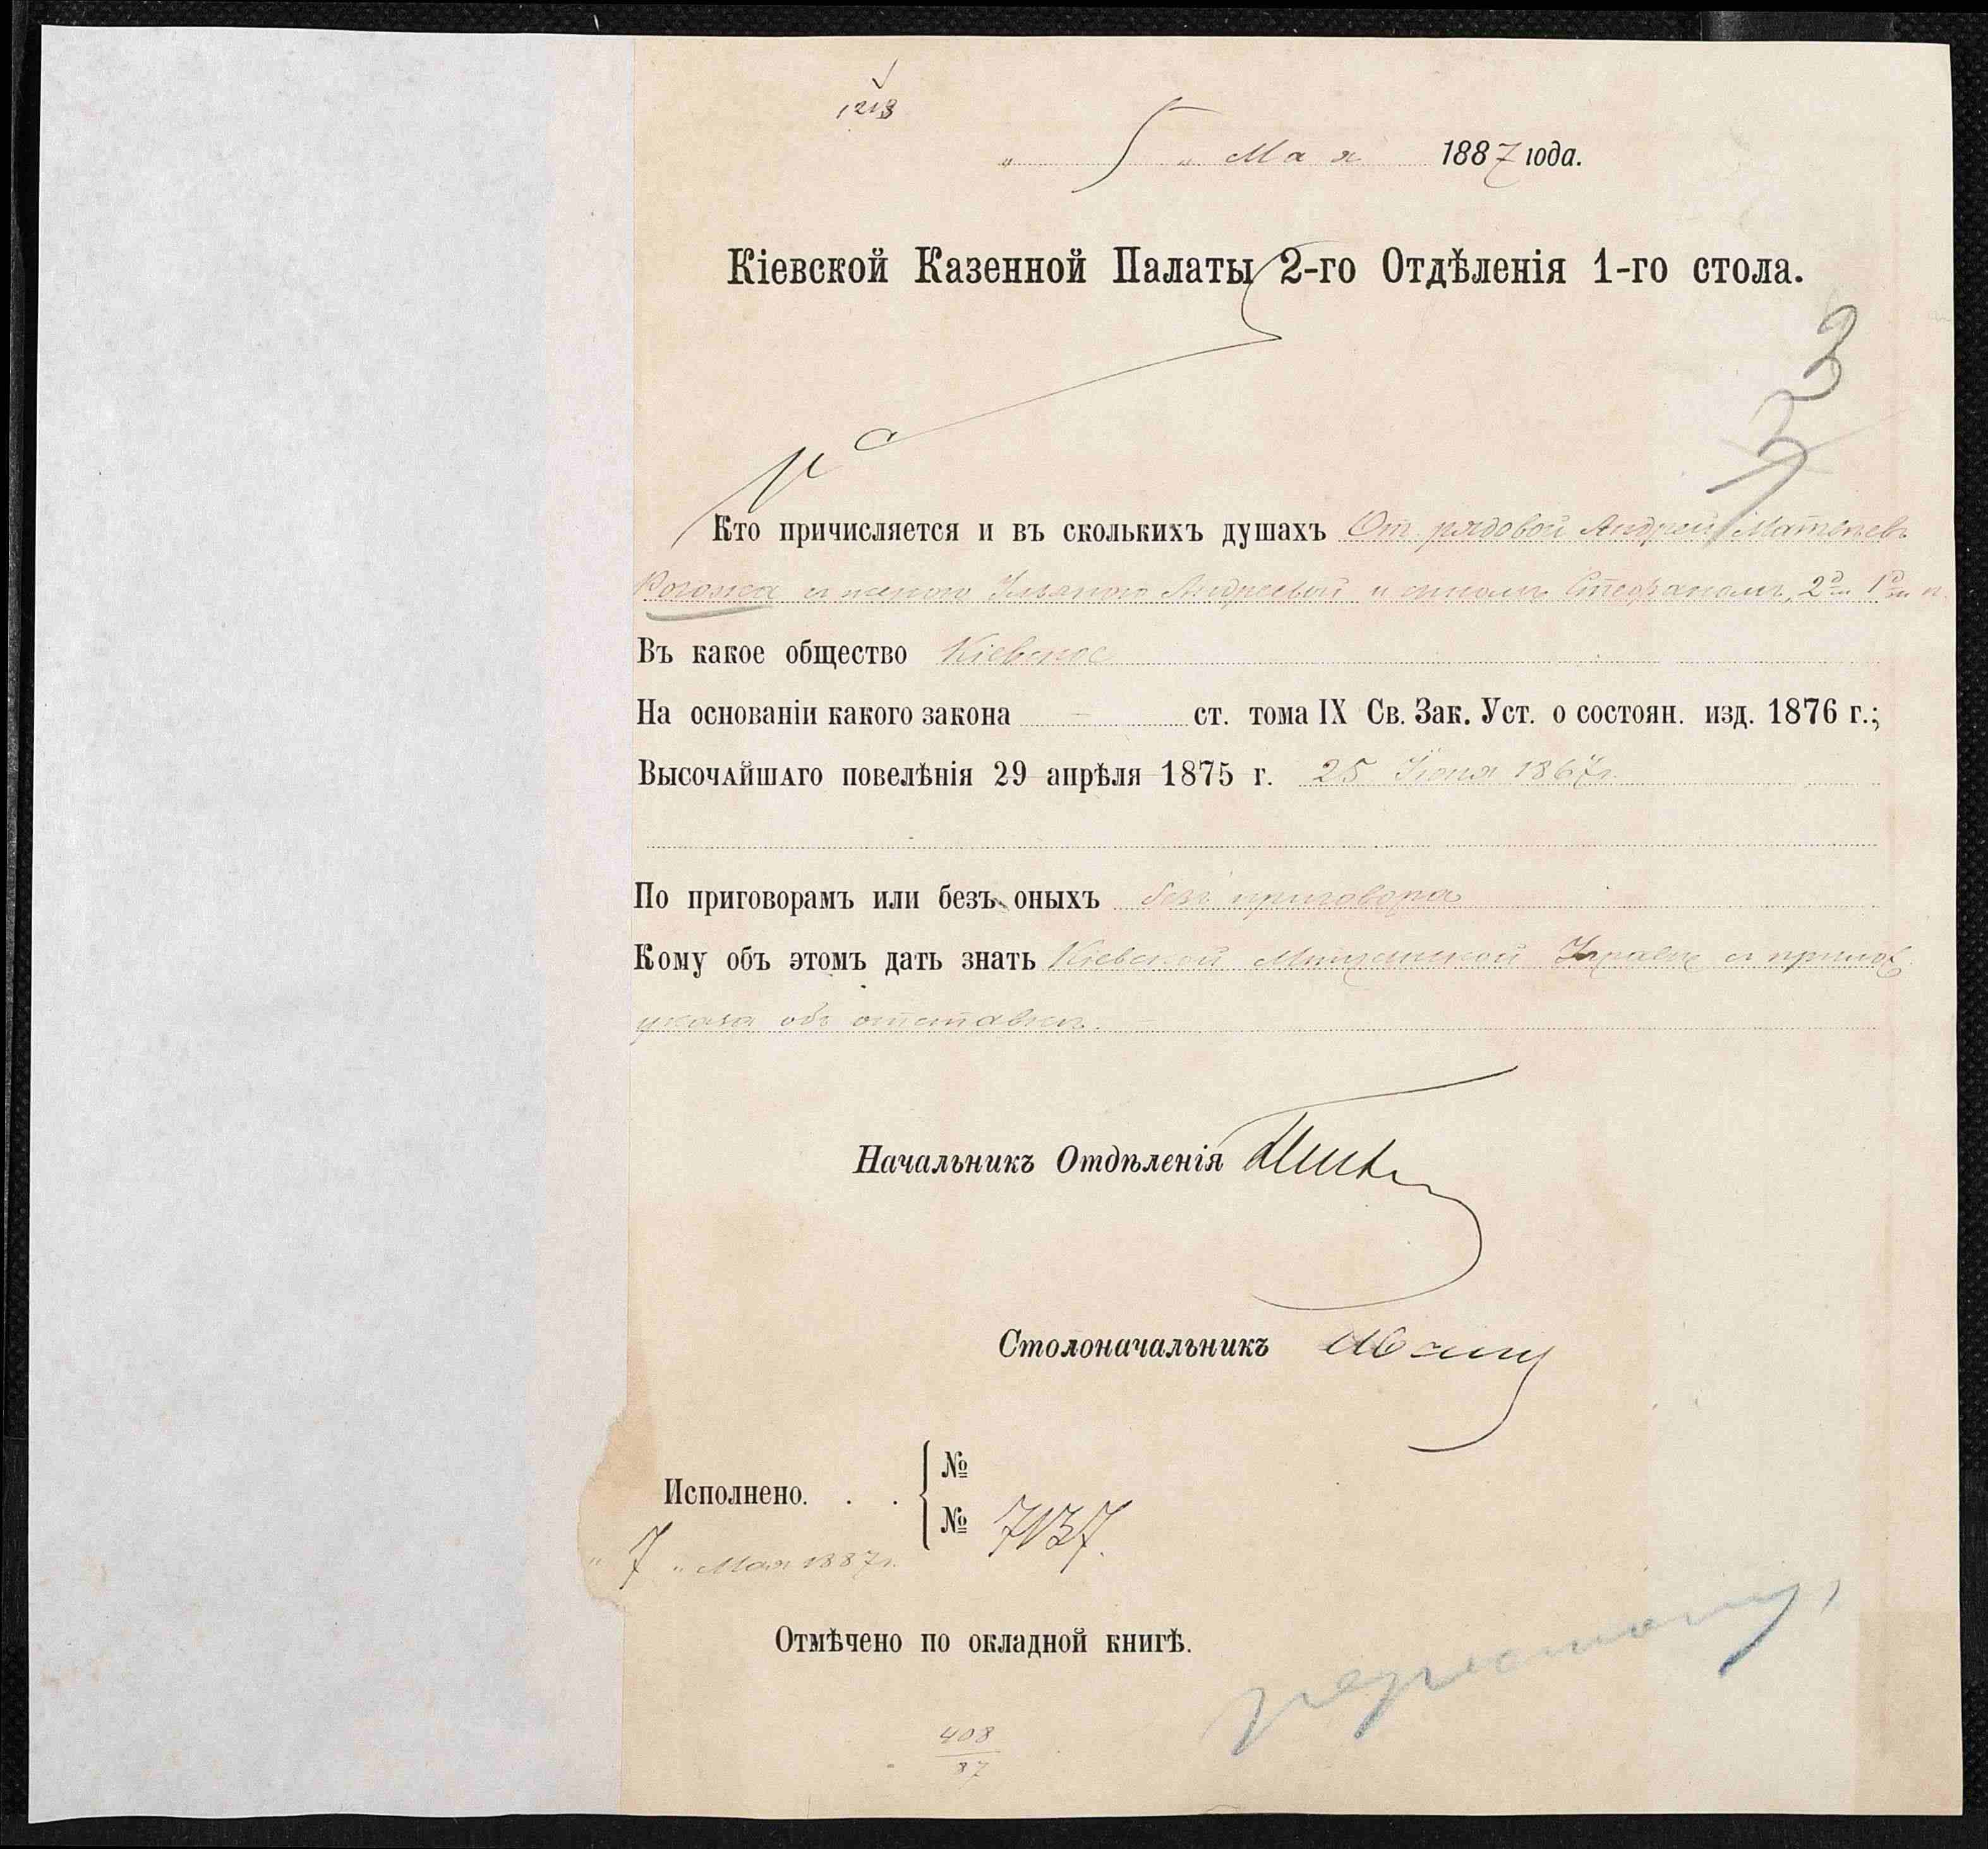 1213
" 5 " Мая 1887 года.
Кіевской Казенной Палаты 2-го Отдѣленія 1-го стола.
3
Кто причисляется и въ сколькихъ душахъ От. рядовой Андрей Матвѣевъ
Рогожа съ женою Ульяною Андреевой и сыномъ Стефаномъ, 2 м. 1
Въ какое общество Кіевское
На основаніи какого закона — ст. тома IX Св. Зак. Уст. о состоян. изд. 1876 г.;
Высочайшаго повелѣнія 29 апрѣля 1875 г. 25 Іюня 1867 г.
По приговорамъ или безъ оныхъ безъ приговора
Кому объ этомъ дать знать Кіевской Мѣщанской Управѣ съ прилож.
указа объ отставкѣ. —
Начальникъ Отдѣленія
Столоначальникъ
Исполнено. . . { №
№ 7137.
" 7 " Мая 1887 г.
Отмѣчено по окладной книгѣ.
408
87